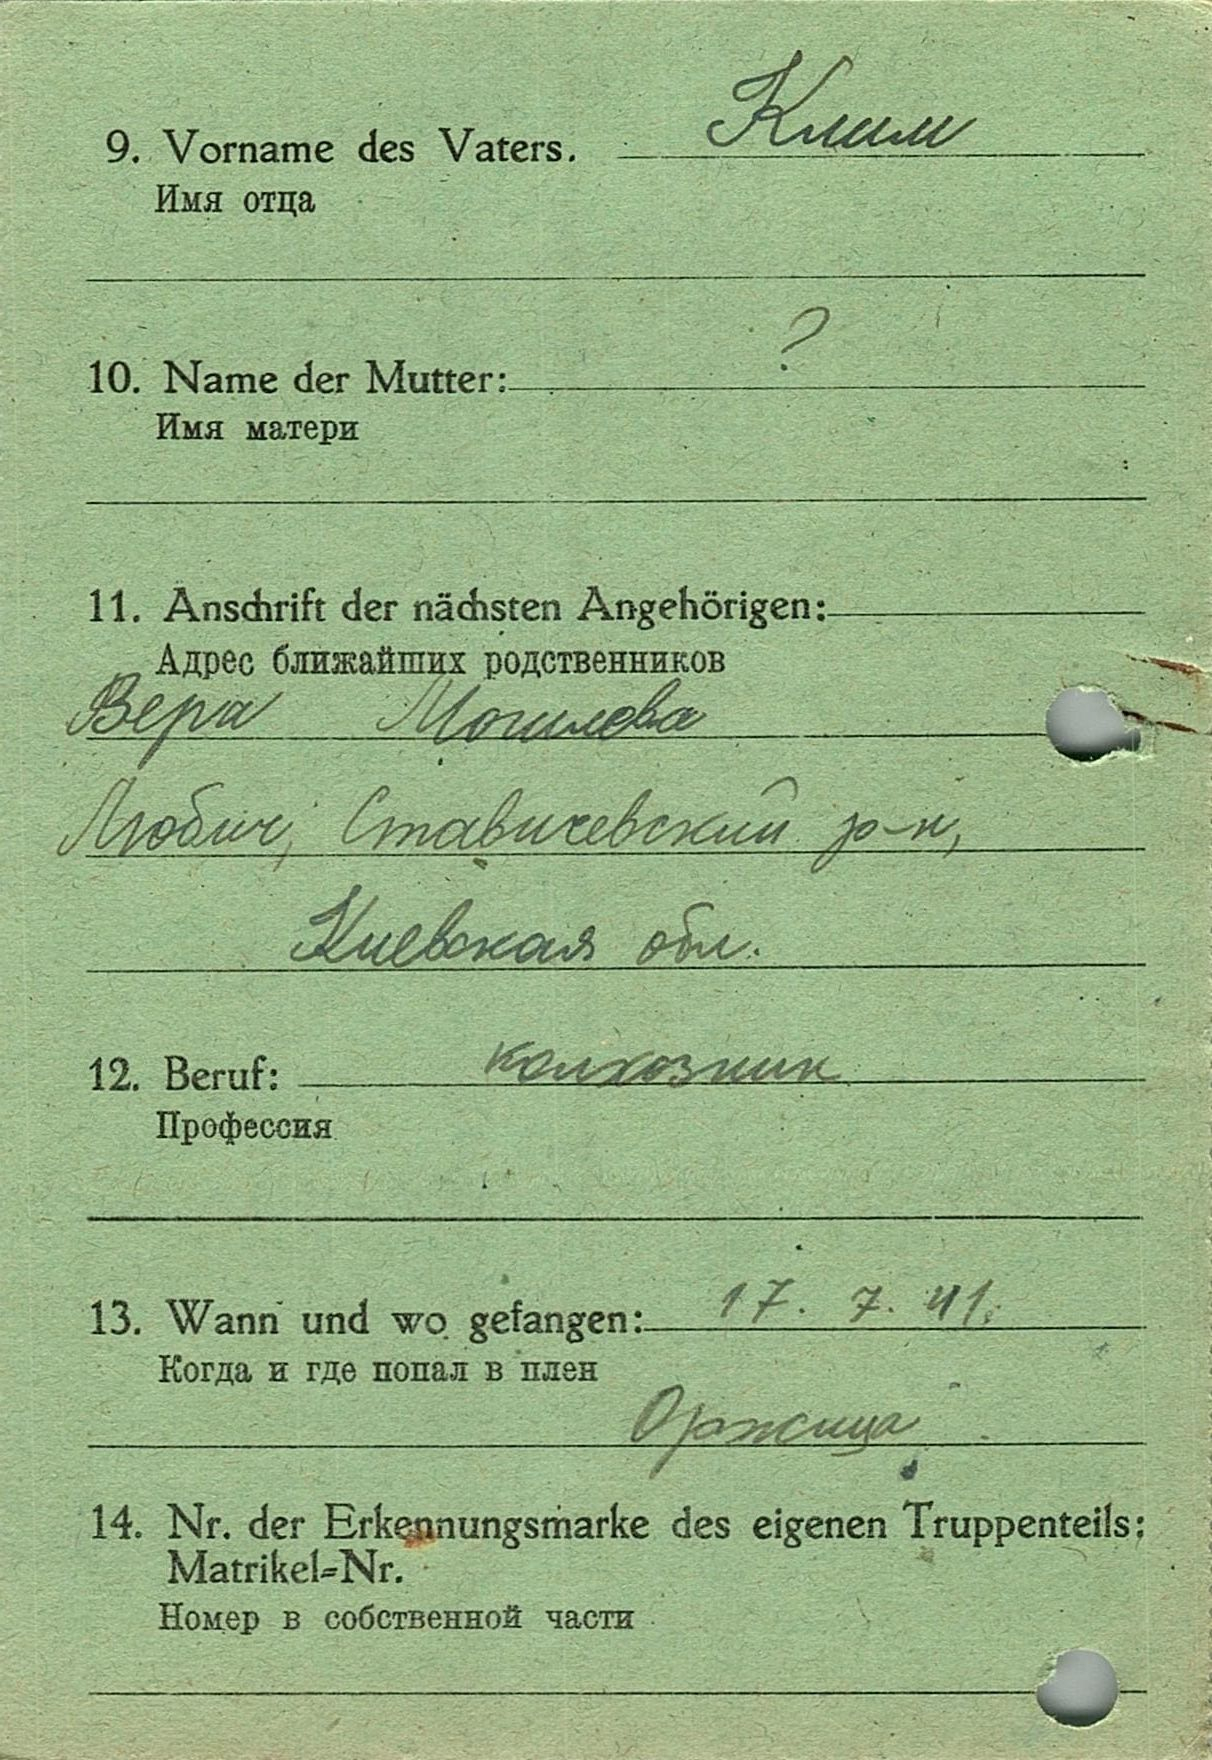 9. Vorname des Vaters. Клим
Имя отца
10. Name der Mutter: ?
Имя матери
11. Anschrift der nächsten Angehörigen:
Адрес ближайших родственников
Вера Могилева
Любич, Ставичевский р-н,
Киевская обл.
12. Beruf: колхозник
Профессия
13. Wann und wo gefangen: 17. 7. 41.
Когда и где попал в плен
Оржица
14. Nr. der Erkennungsmarke des eigenen Truppenteils:
Matrikel-Nr.
Номер в собственной части